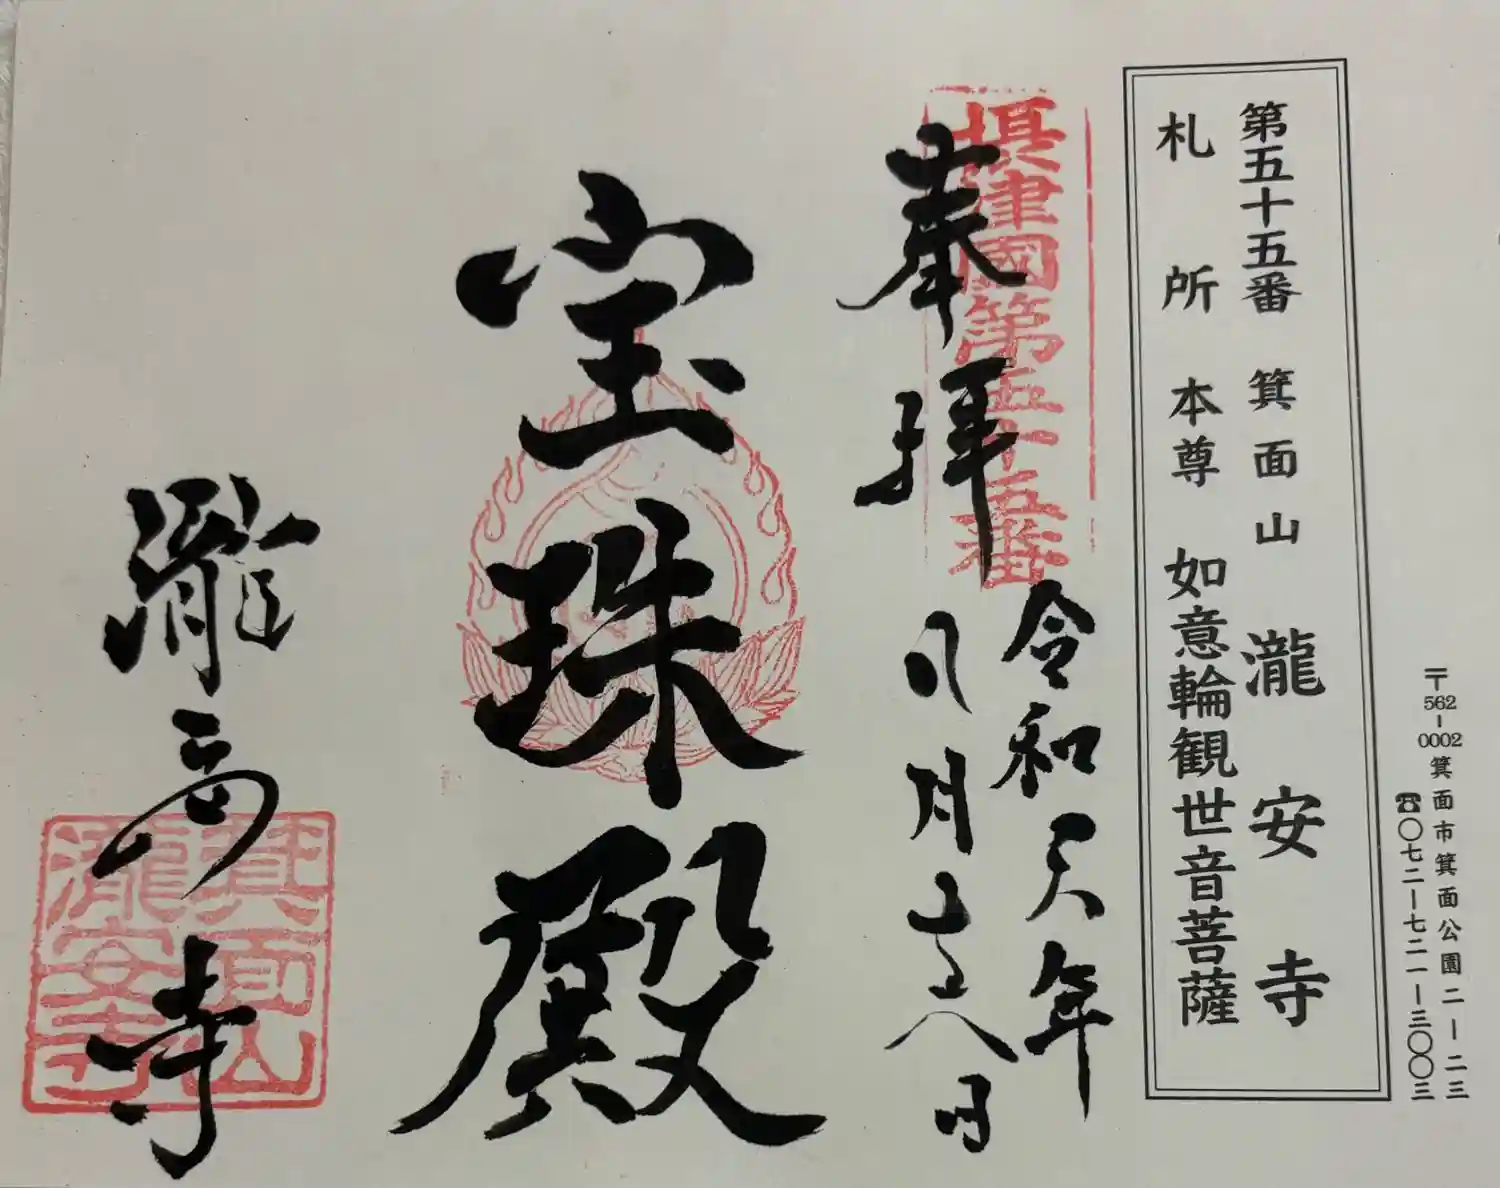 〒562-0002箕面市箕面公園二ー二三
☎〇七二ー七二一ー三〇〇三
第五十五番 箕面山 瀧安寺
札所本尊 如意輪観世音菩薩
摂津國第五十五番
奉拝
令和元年
月 日
宝珠殿
瀧安寺
箕面山
瀧安寺